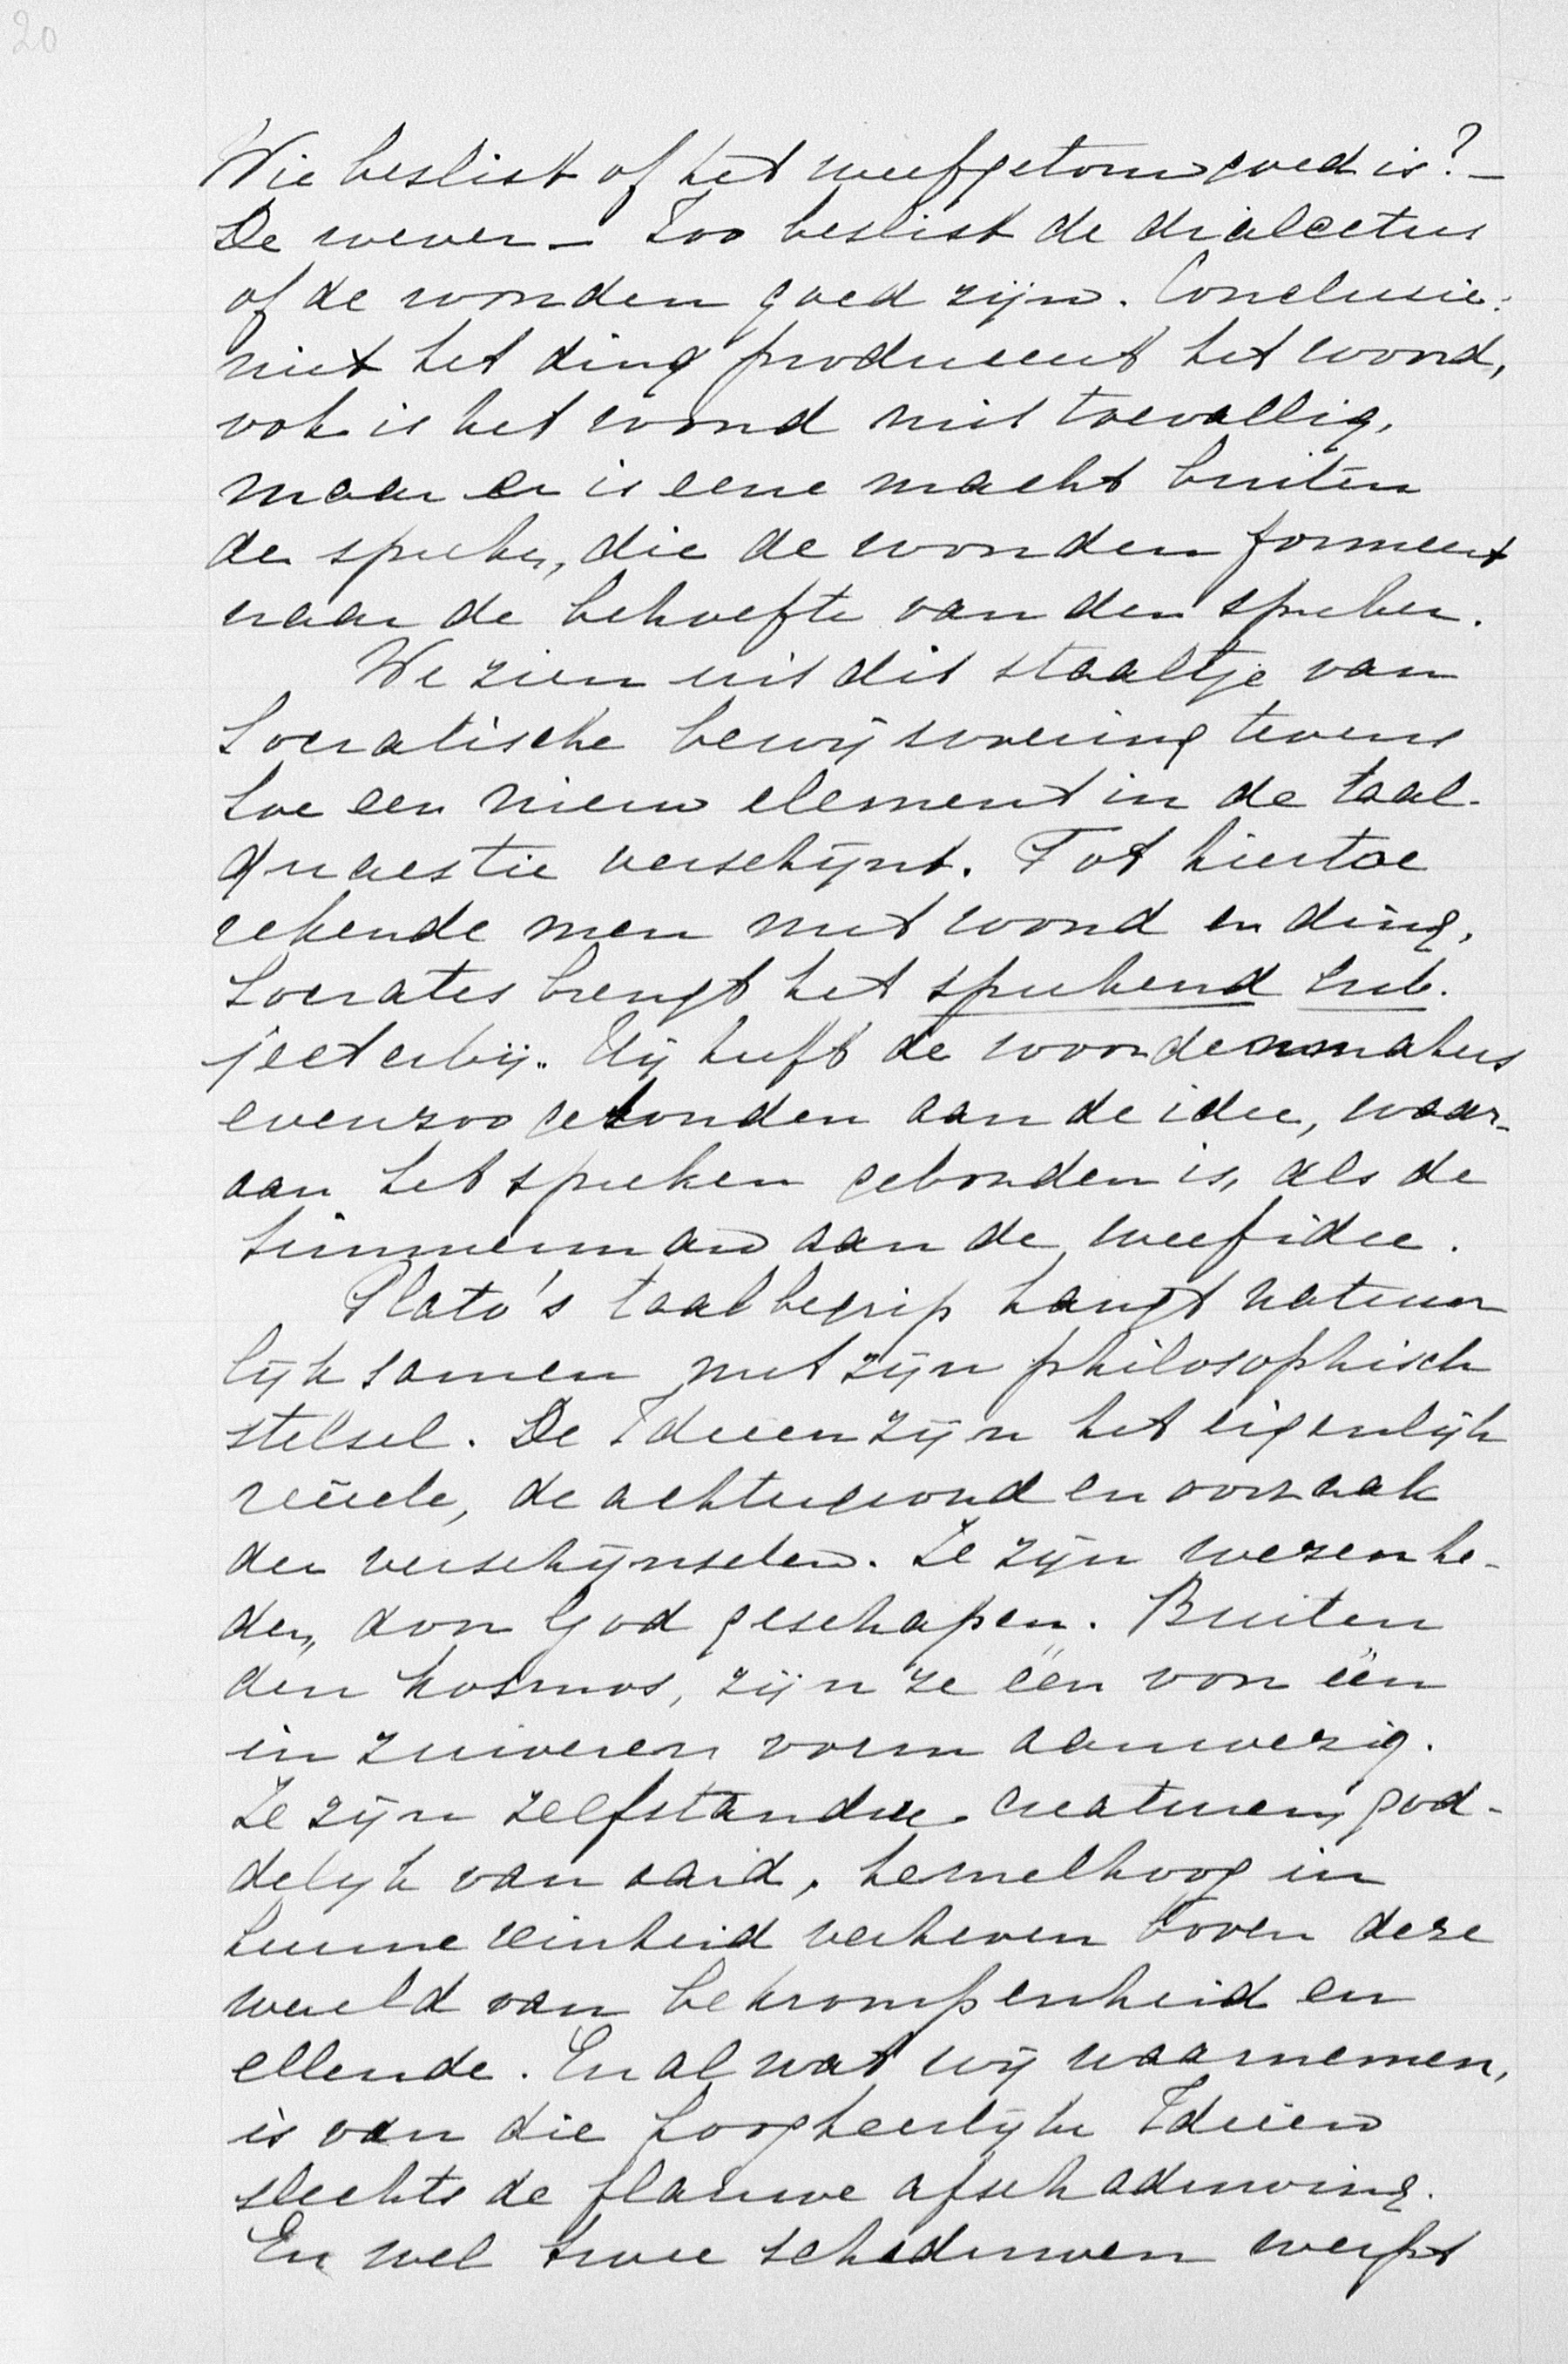 20
Wie beslist of het weefgetouw goed is? –
De wever – Zoo beslist de dialecticus
of de woorden goed zijn. Conclusie:
niet het ding produceert het woord,
ook is het woord niet toevallig,
maar er is eene macht buiten
de spreker, die de woorden formeert
naar de behoefte van den spreker.
We zien uit dit staaltje van
Socratische bewijsvoering tevens
hoe een nieuw element in de taal-
quaestie verschijnt. Tot hiertoe
rekende men met woord en ding,
Socrates brengt het sprekend sub-
ject erbij. Hij heeft de woordenmakers
evenzoo gebonden aan de idee, waar-
aan het spreken gebonden is, als de
timmerman aan de weefidee.
Plato's taalbegrip hangt natuur
lijk samen met zijn philosophisch
stelsel. De Ideeen zijn het eigenlijk
reëele, de achtergrond en oorzaak
der verschijnselen. Ze zijn wezenhe-
den, door God geschapen. Buiten
den kosmos, zijn ze één voor één
in zuiveren vorm aanwezig.
Ze zijn zelfstandige creaturen, god-
delijk van aard, hemelhoog in
hunne reinheid verheven boven deze
wereld van bekrompenheid en
ellende. En al wat wij waarnemen,
is van die hoogheerlijke Ideeën
slechts de flauwe afschaduwing.
En wel twee schaduwen werpt